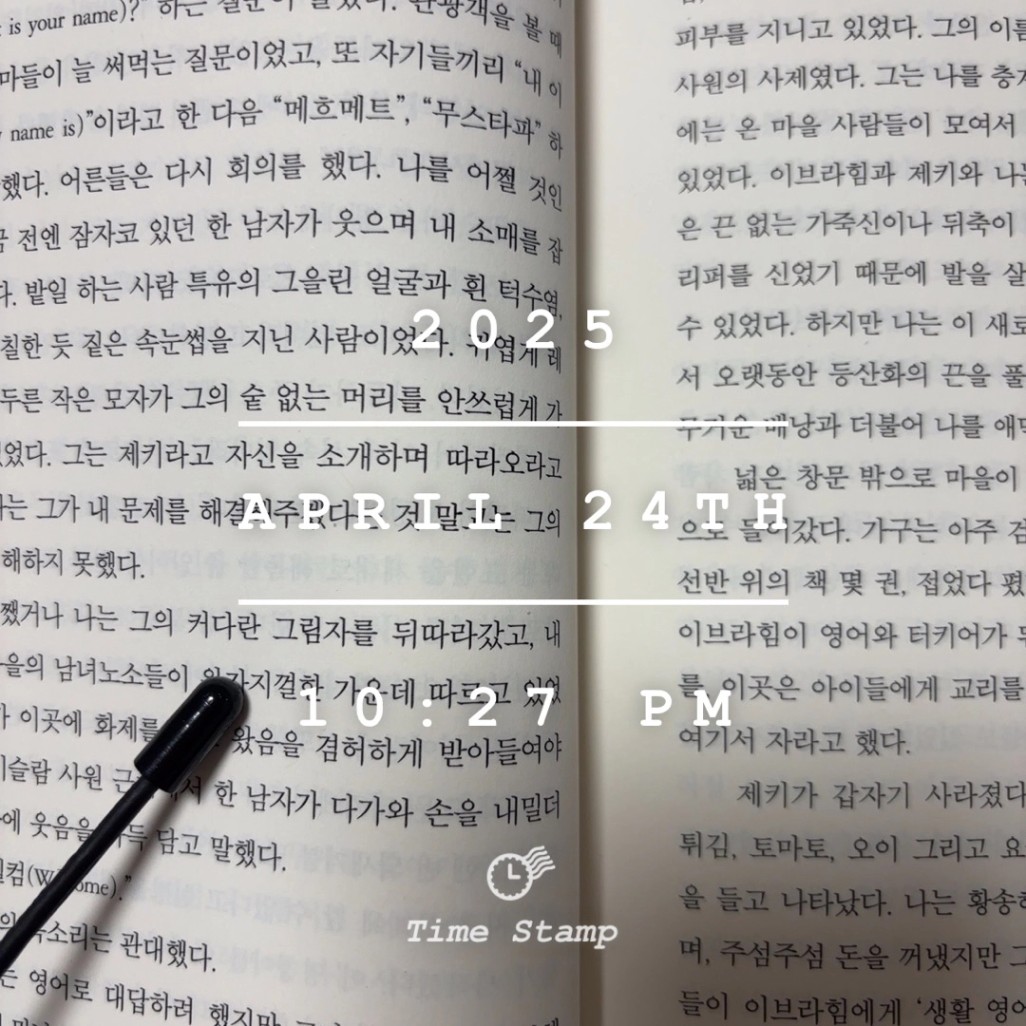 is your name)?” 하는 질문이
관광객을 볼 때
마들이 늘 써먹는 질문이었고, 또 자기들끼리 “내 이
name is)”이라고 한 다음 “메흐메트”, “무스타파” 하
했다. 어른들은 다시 회의를 했다. 나를 어쩔 것인
전엔 잠자코 있던 한 남자가 웃으며 내 소매를 잡
다. 밭일 하는 사람 특유의 그을린 얼굴과 흰 턱수염,
칠한 듯 짙은 속눈썹을 지닌 사람이었다. 귀엽게 레
두른 작은 모자가 그의 숱 없는 머리를 안쓰럽게 가
있었다. 그는 제키라고 자신을 소개하며 따라오라고
나는 그가 내 문제를 해결해주겠다는 것 말고는 그의
해하지 못했다.
쨌거나 나는 그의 커다란 그림자를 뒤따라갔고, 내
을의 남녀노소들이 왁가지껄한 가운데 따르고 있었
이곳에 화제를
왔음을 겸허하게 받아들여야
이슬람 사원
한 남자가 다가와 손을 내밀더
에 웃음을 가득 담고 말했다.
컴(Welcome).”
목소리는 관대했다.
는 영어로 대답하려 했지만
피부를 지니고 있었다. 그의 이름
사원의 사제였다. 그는 나를
에는 온 마을 사람들이 모여서
있었다. 이브라힘과 제키와 나
은 끈 없는 가죽신이나 뒤축이
리퍼를 신었기 때문에 발을 살
수 있었다. 하지만 나는 이 새로
서 오랫동안 등산화의 끈을 풀
무거운 배낭과 더불어 나를 애
넓은 창문 밖으로 마을이
으로 들어갔다. 가구는 아주
선반 위의 책 몇 권, 접었다
이브라힘이 영어와 터키어가
를 이곳은 아이들에게 교리를
여기서 자라고 했다.
제키가 갑자기 사라졌다
튀김, 토마토, 오이 그리고 요
을 들고 나타났다. 나는 황송
며, 주섬주섬 돈을 꺼냈지만 그
들이 이브라힘에게 ‘생활 영어
2025
APRIL 24TH
10:27 PM
Time Stamp